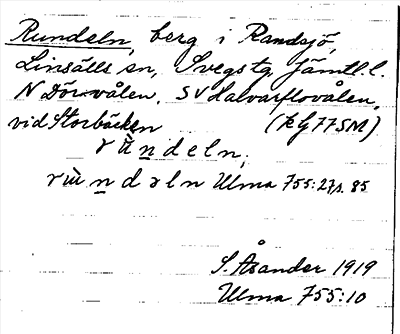 Rundeln, berg i Randsjö,
Linsälls sn, Svegs tg, Jämtl. l.
N Dörrvålen, SV Halvarflovålen,
vid Storbäcken (kG77SM)
rùndeln,
n d ə l n Ulma 755:27, s. 85
S. Åsander 1919
Ulma 755:10